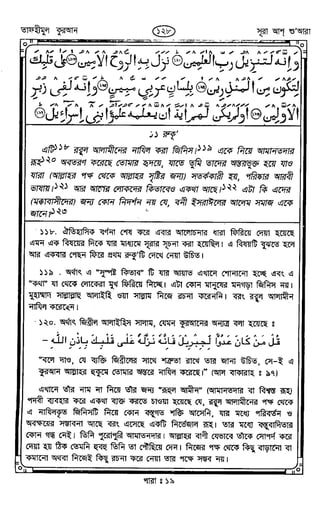 তাফহীমুল কুরআন ১২৮ সূরা আশ্ শু'আরা
وَإِنَّهُ لَتَنْزِيلُ رَبِّ الْعَلَمِينَ ﴿١٩٢﴾ نَزَلَ بِهِ الرُّوحُ الْأَمِينُ ﴿١٩٣﴾ عَلَى قَلْبِكَ
لِتَكُونَ مِنَ الْمُنْذِرِينَ ﴿١٩٤﴾ بِلِسَانٍ عَرَبِيٍّ مُبِينٍ ﴿١٩٥﴾ وَإِنَّهُ لَفِي زُبُرِ
الْأَوَّلِينَ ﴿١٩٦﴾ أَوَلَمْ يَكُنْ لَهُمْ آيَةً أَنْ يَعْلَمَهُ عُلَمَؤُا بَنِي إِسْرَائِيلَ ﴿١٩٧﴾
১১ রুকূ'
এটি রব্বুল আলামীনের নাযিল করা জিনিস।১১৯ একে নিয়ে আমানতদার
রূহ১২০ অবতরণ করেছে তোমার হৃদয়ে, যাতে তুমি তাদের অন্তরভুক্ত হয়ে যাও
যারা (আল্লাহর পক্ষ থেকে আল্লাহর সৃষ্টির জন্য) সতর্ককারী হয়, পরিষ্কার আরবী
ভাষায়।১২১ আর আগের লোকদের কিতাবেও একথা আছে।১২২ এটা কি এদের
(মক্কাবাসীদের) জন্য কোন নিদর্শন নয় যে, বনী ইসরাঈলের আলেম সমাজ একে
জানে?১২৩
১১৮. ঐতিহাসিক বর্ণনা শেষ করে এবার আলোচনার ধারা ফিরিয়ে দেয়া হয়েছে
এমন এক বিষয়ের দিকে যার মাধ্যমে সূরার সূচনা করা হয়েছিল। এ বিষয়টি বুঝতে হলে
আর একবার পেছন ফিরে প্রথম রুকূ'টি দেখে নেয়া উচিত।
১১৯. অর্থাৎ এ "সুস্পষ্ট কিতাব" টি যার আয়াত এখানে শোনানো হচ্ছে এবং এ
"কথা" যা থেকে লোকেরা মুখ ফিরিয়ে নিচ্ছে। এটা কোন মানুষের মনগড়া জিনিস নয়।
মুহাম্মাদ সাল্লাল্লাহু আলাইহি ওয়া সাল্লাম নিজে রচনা করেননি। বরং রব্বুল আলামীন
নাযিল করেছেন।
১২০. অর্থাৎ জিব্রীল আলাইহিস সালাম, যেমন কুরআনের অন্যত্র বলা হয়েছে ঃ
قُلْ مَنْ كَانَ عَدُوًّا لِجِبْرِيلَ فَإِنَّهُ نَزَّلَهُ عَلَى قَلْبِكَ بِإِذْنِ اللَّهِ -
"বলে দাও, যে ব্যক্তি জিব্রীলের সাথে শত্রুতা রাখে তার জানা উচিত, সে-ই এ
কুরআন আল্লাহর হুকুমে তোমার অন্তরে নাযিল করেছে।" (আল বাকারাহ ঃ ৯৭)
এখানে তাঁর নাম না নিয়ে তাঁর জন্য "রূহুল আমীন" (আমানতদার বা বিশ্বস্ত রূহ)
পদবী ব্যবহার করে একথা ব্যক্ত করতে চাওয়া হয়েছে যে, রব্বুল আলামীনের পক্ষ থেকে
এ নাযিলকৃত জিনিসটি নিয়ে কোন বস্তুগত শক্তি আসেনি, যার মধ্যে পরিবর্তন ও
অবক্ষয়ের সম্ভাবনা আছে বরং এসেছে একটি নির্ভেজাল রূহ। তার মধ্যে বস্তুবাদিতার
কোন গন্ধ নেই। তিনি পুরোপুরি আমানতদার। আল্লাহর বাণী যেভাবে তাঁকে সোপর্দ করে
দেয়া হয় ঠিক তেমনি হুবহু তিনি তা পৌঁছিয়ে দেন। নিজের পক্ষ থেকে কিছু বাড়ানো বা
কমানো অথবা নিজেই কিছু রচনা করে নেয়া তার পক্ষে সম্ভব নয়।
পারা ঃ ১৯